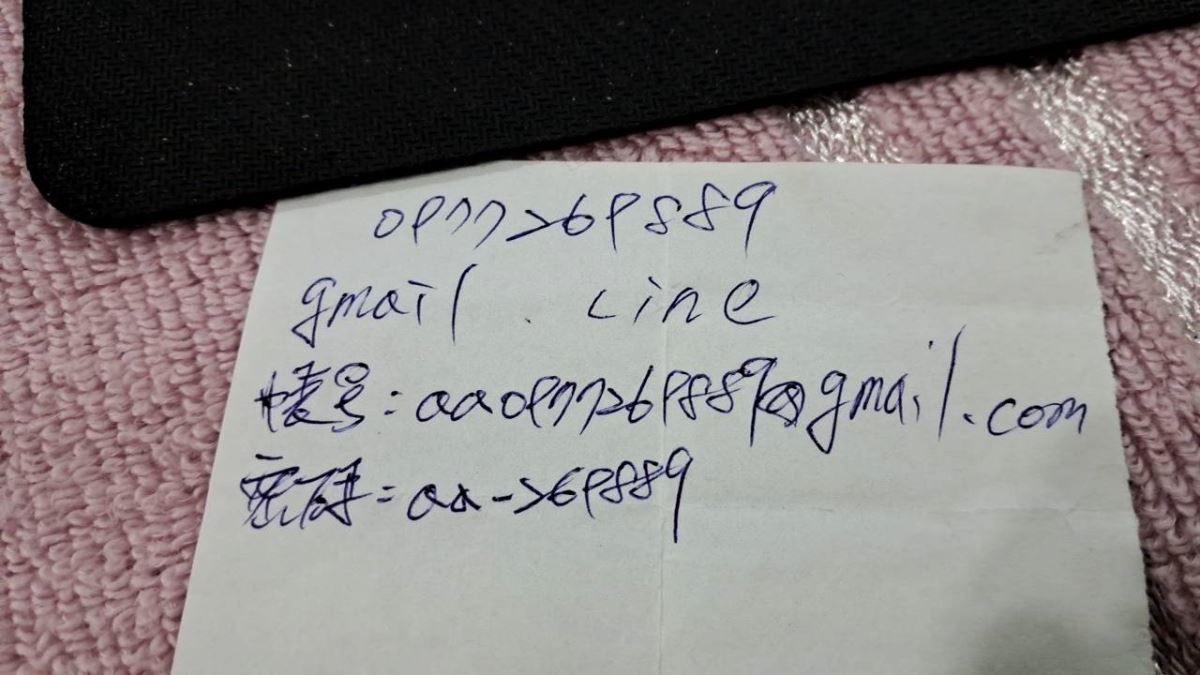 0977269889
gmail Line
帳号:aa0977269889@gmail.com
密码:aa-269889